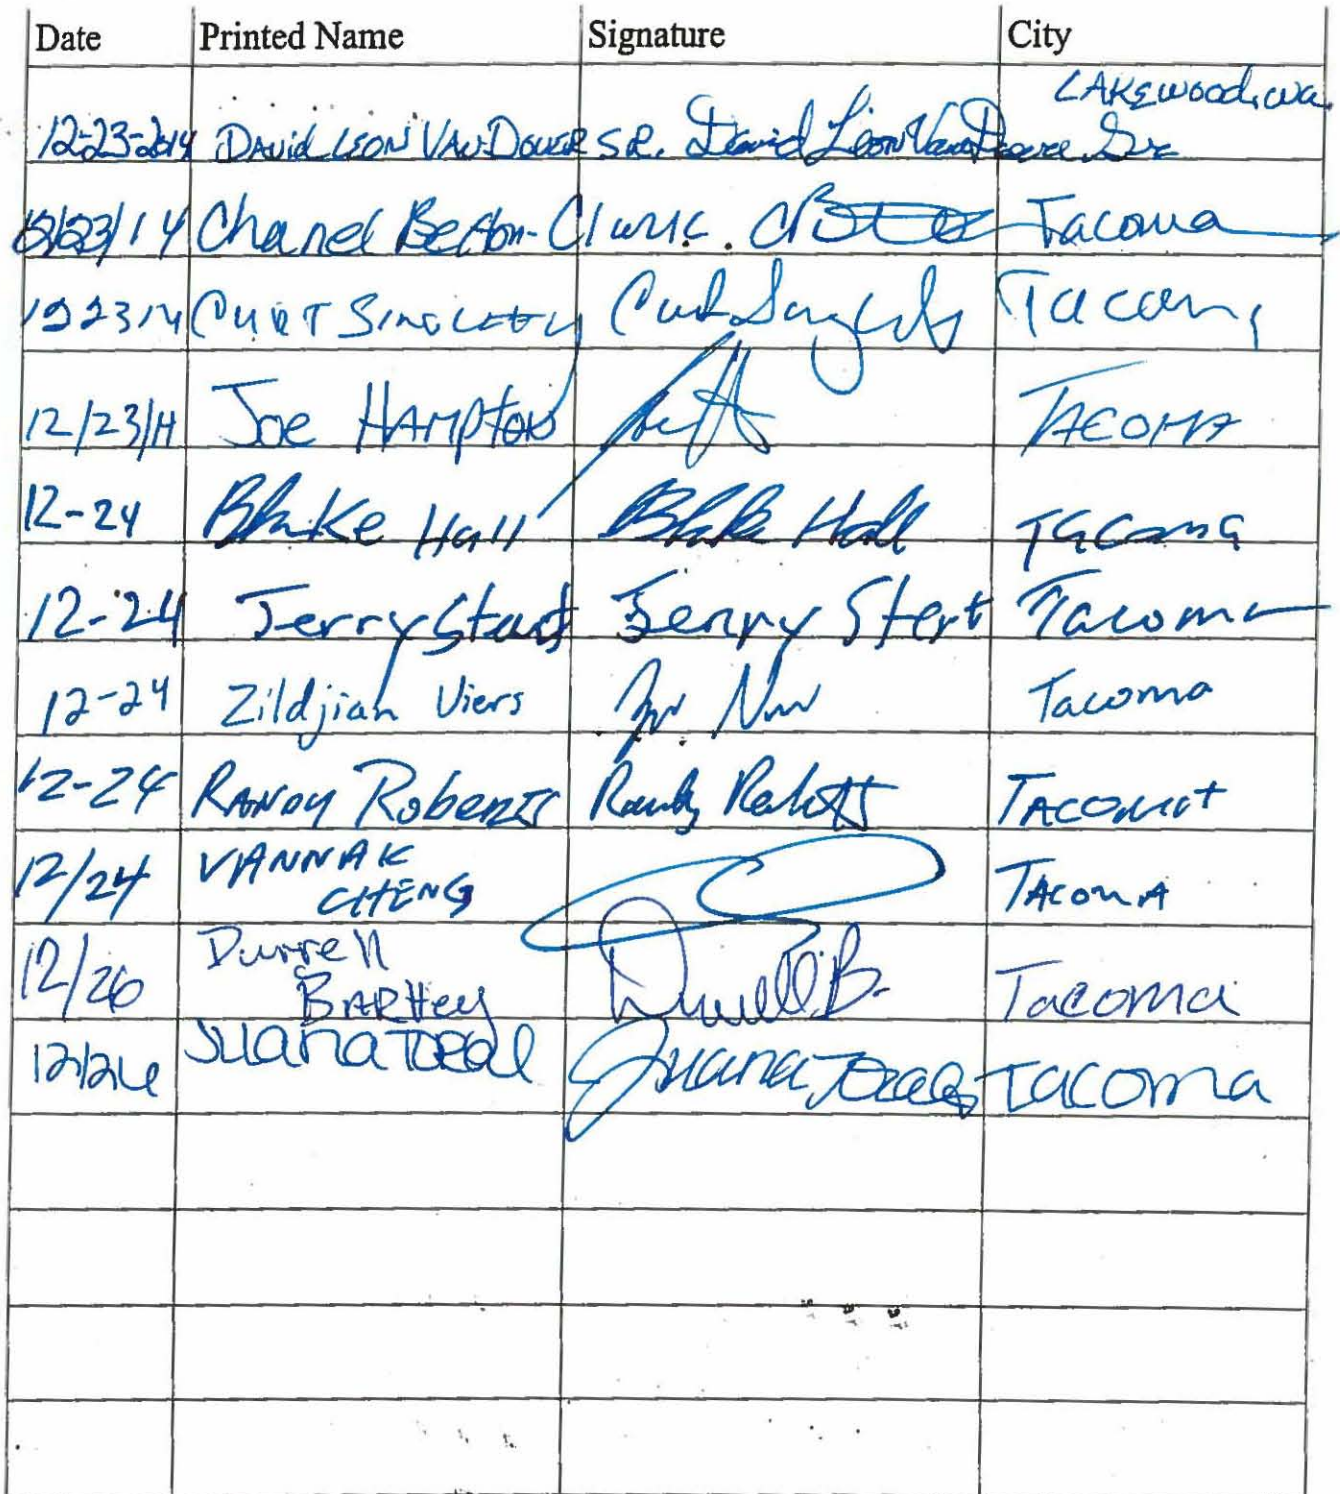 Date Printed Name Signature City
LAKEwood, wa.
12-23-2014 DAVid LEON VAN Dover SR. David Leon Van Sr
12/23/14 Chanel Clark Tacoma
122314 CURT SINGLETY Curt Tacoma
12/23/14 Joe HAMPTON TACOMA
12-24 Blake Hall Blake Hall Tacoma
12-24 Jerry Jerry Stert Tacoma
12-24 Zildjian Viers Tacoma
12-24 RANDY Roberts Randy TACOMA
12/24 VANNAK CHENG TACOMA
12/26 Durrell BARtley Durrell B. Tacoma
12/26 JUana TORAL Juana Tacoma